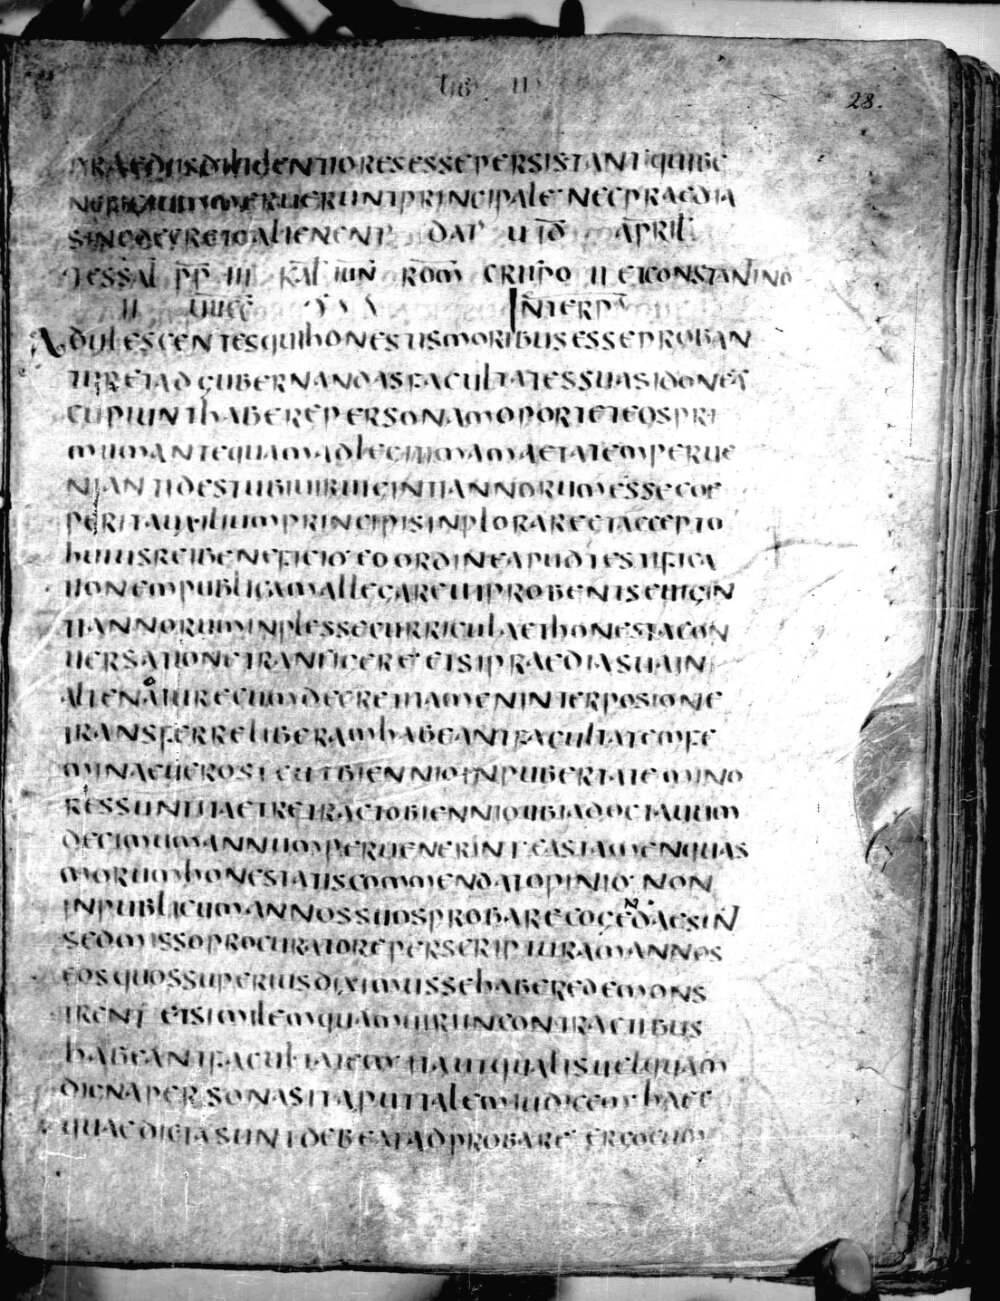 LIB II
28.
PRAEDIISDILIGENTIORESESSEPERSISTANTQUIBE
NERUERUNTPRINCIPALENECPRAEDIA
SINEDECRETOALIENENT DAT U ID APRIL
TESSAL PP III KAL IUN ROM CRISPO II ETCONSTANTINO
II INTERP
ADULESCENTESQUIHONESTISMORIBUSESSEPROBAN
TURETADGUBERNANDASFACULTATESSUASIDONEA
CUPIUNTHABEREPERSONAMOPORTETEOSPRI
MUMANTEQUAMADLECITIMAMAETATEMPERUE
NIANTIDESTUBIUIRUICINTIANNORUMESSECOE
PERITAUXILIUMPRINCIPISINPLORARECTACCEPTO
HUIUSREIBENEFICIOEOORDINEAPUDTESTIFICA
TIONEMPUBLICAMALLEGARETUTPROBENTSEUICIN
TIANNORUMINPLESSECURRICULAETHONESTACON
UERSATIONETRANFICERE ETSIPRAEDIASUAIN
ALIENAIURECUMDECRETITAMENINTERPOSIONE
TRANSFERRELIBERAMHABEANTFACULTATEMFE
MINAEUEROSICUTBIENNIOINPUBERTATEMINO
RESSUNTITAETRETRACTOBIENNIOUBIADOCTAUUM
DECIMUMANNUMPERUENERINTEASTAMENQUAS
MORUMHONESTATISCOMMENDATOPINIO NON
INPUBLICUMANNOSSUOSPROBARECOGENDAESINT
SEDMISSOPROCURATOREPERSCRIPTURAMANNOS
EOSQUOSSUPERIUSDIXIMUSSEHABEREDEMONS
TRENT ETSIMILEMQUAMUIRIINCONTRACTIBUS
HABEANTFACULTATEM ITAUTQUALISUELQUAM
DIGNAPERSONASITAPUTTALEMIUDICEMHAEC
QUAEDICTASUNTDEBEATADPROBARE ERGOCUM